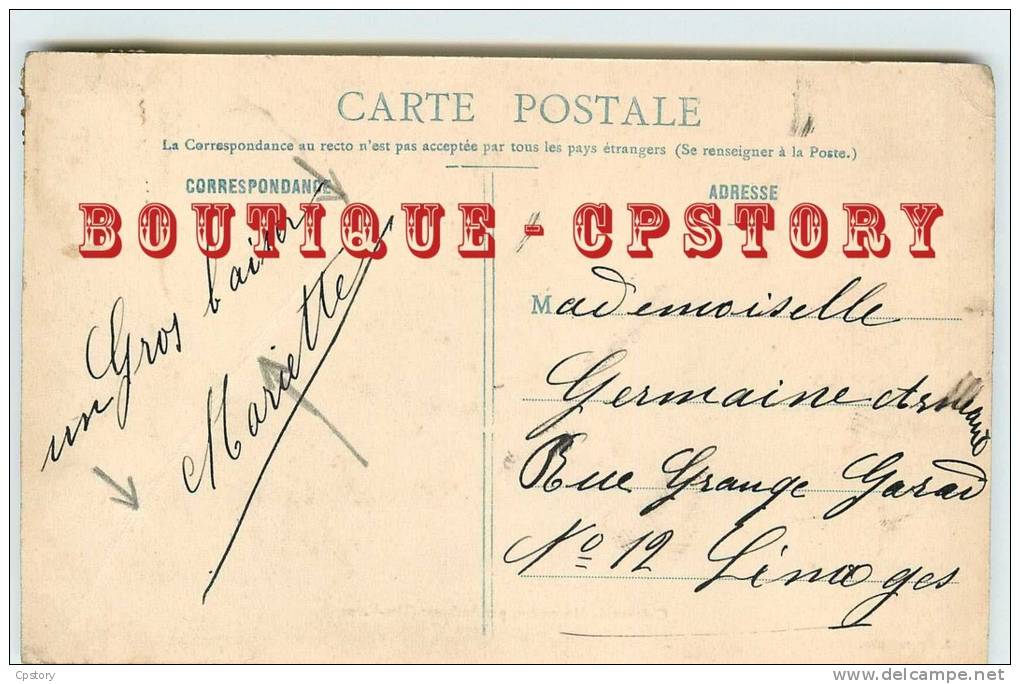 CARTE POSTALE
La Correspondance au recto n'est pas acceptée par tous les pays étrangers (Se renseigner à la Poste.)
CORRESPONDANCE
ADRESSE
BOUTIQUE - CPSTORY
un Gros baiser
Mariette
Mademoiselle
Germaine
Rue Grange Garad
No 12 Limoges
Cpstory
delcampe.net